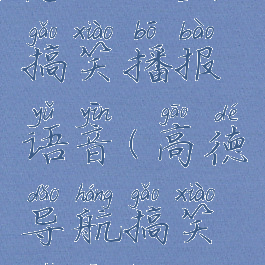 gǎo xiào bō bào
搞笑播报
yǔ yīn gāo dé
语音(高德
dǎo háng gǎo xiào
导航搞笑